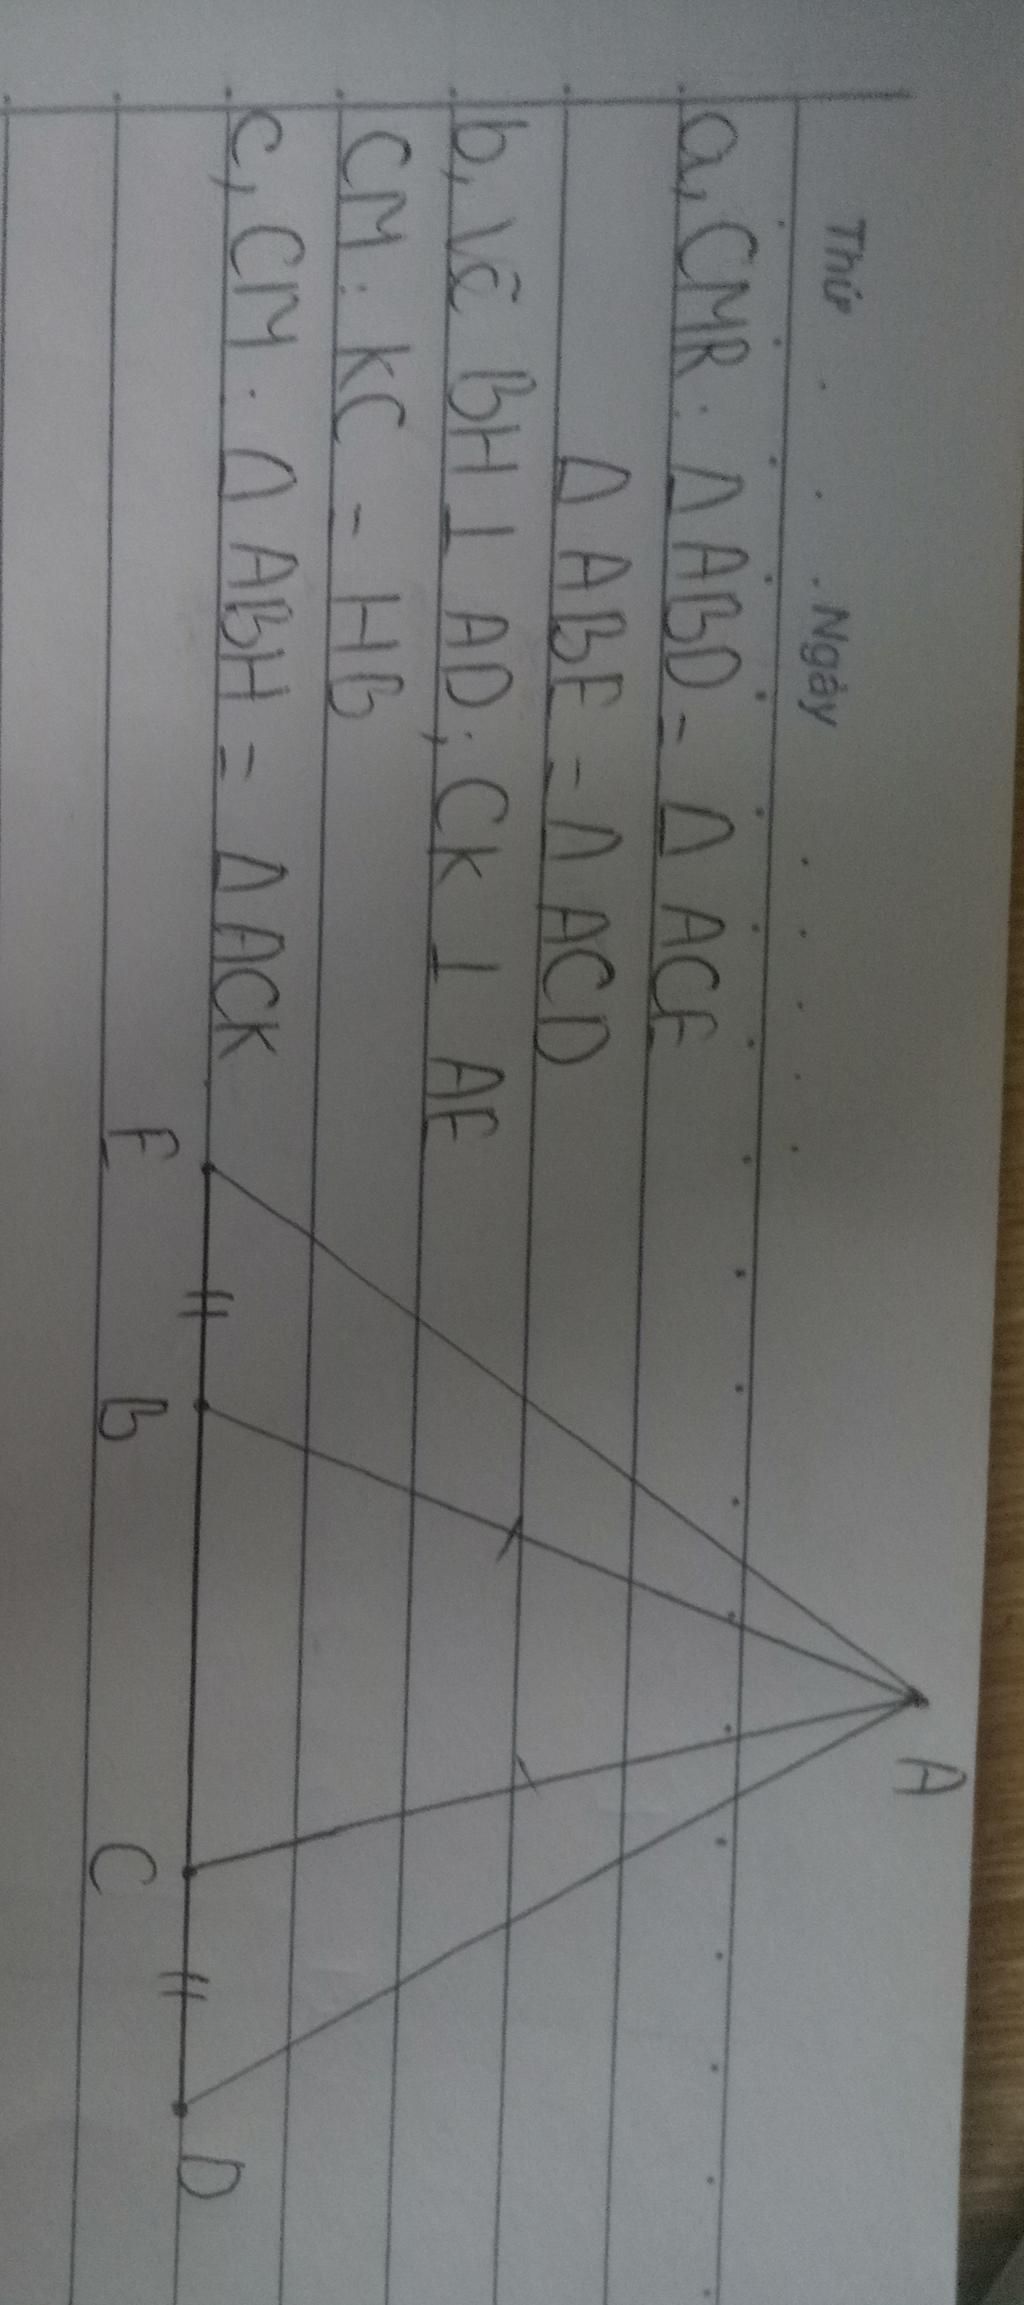 Thứ Ngày
a, CMR: Δ ABD = Δ ACE
Δ ABE = Δ ACD
b, Vẽ BH ⊥ AD; CK ⊥ AE
CM: KC = HB
c, CM: Δ ABH = Δ ACK
A
E B C D